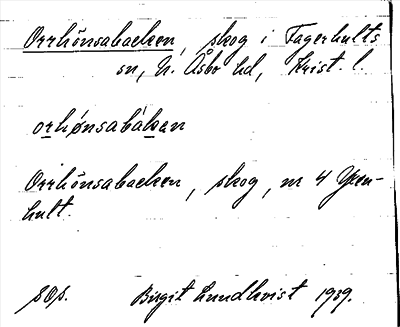 Orrhönsabacken, skog i Fagerhults
sn, N. Åsbo hd, Krist. l.
orhønsabakan
Orrhönsabacken, skog, nr 4 Yxen-
hult.
sOp. Birgit Lundkvist 1939.